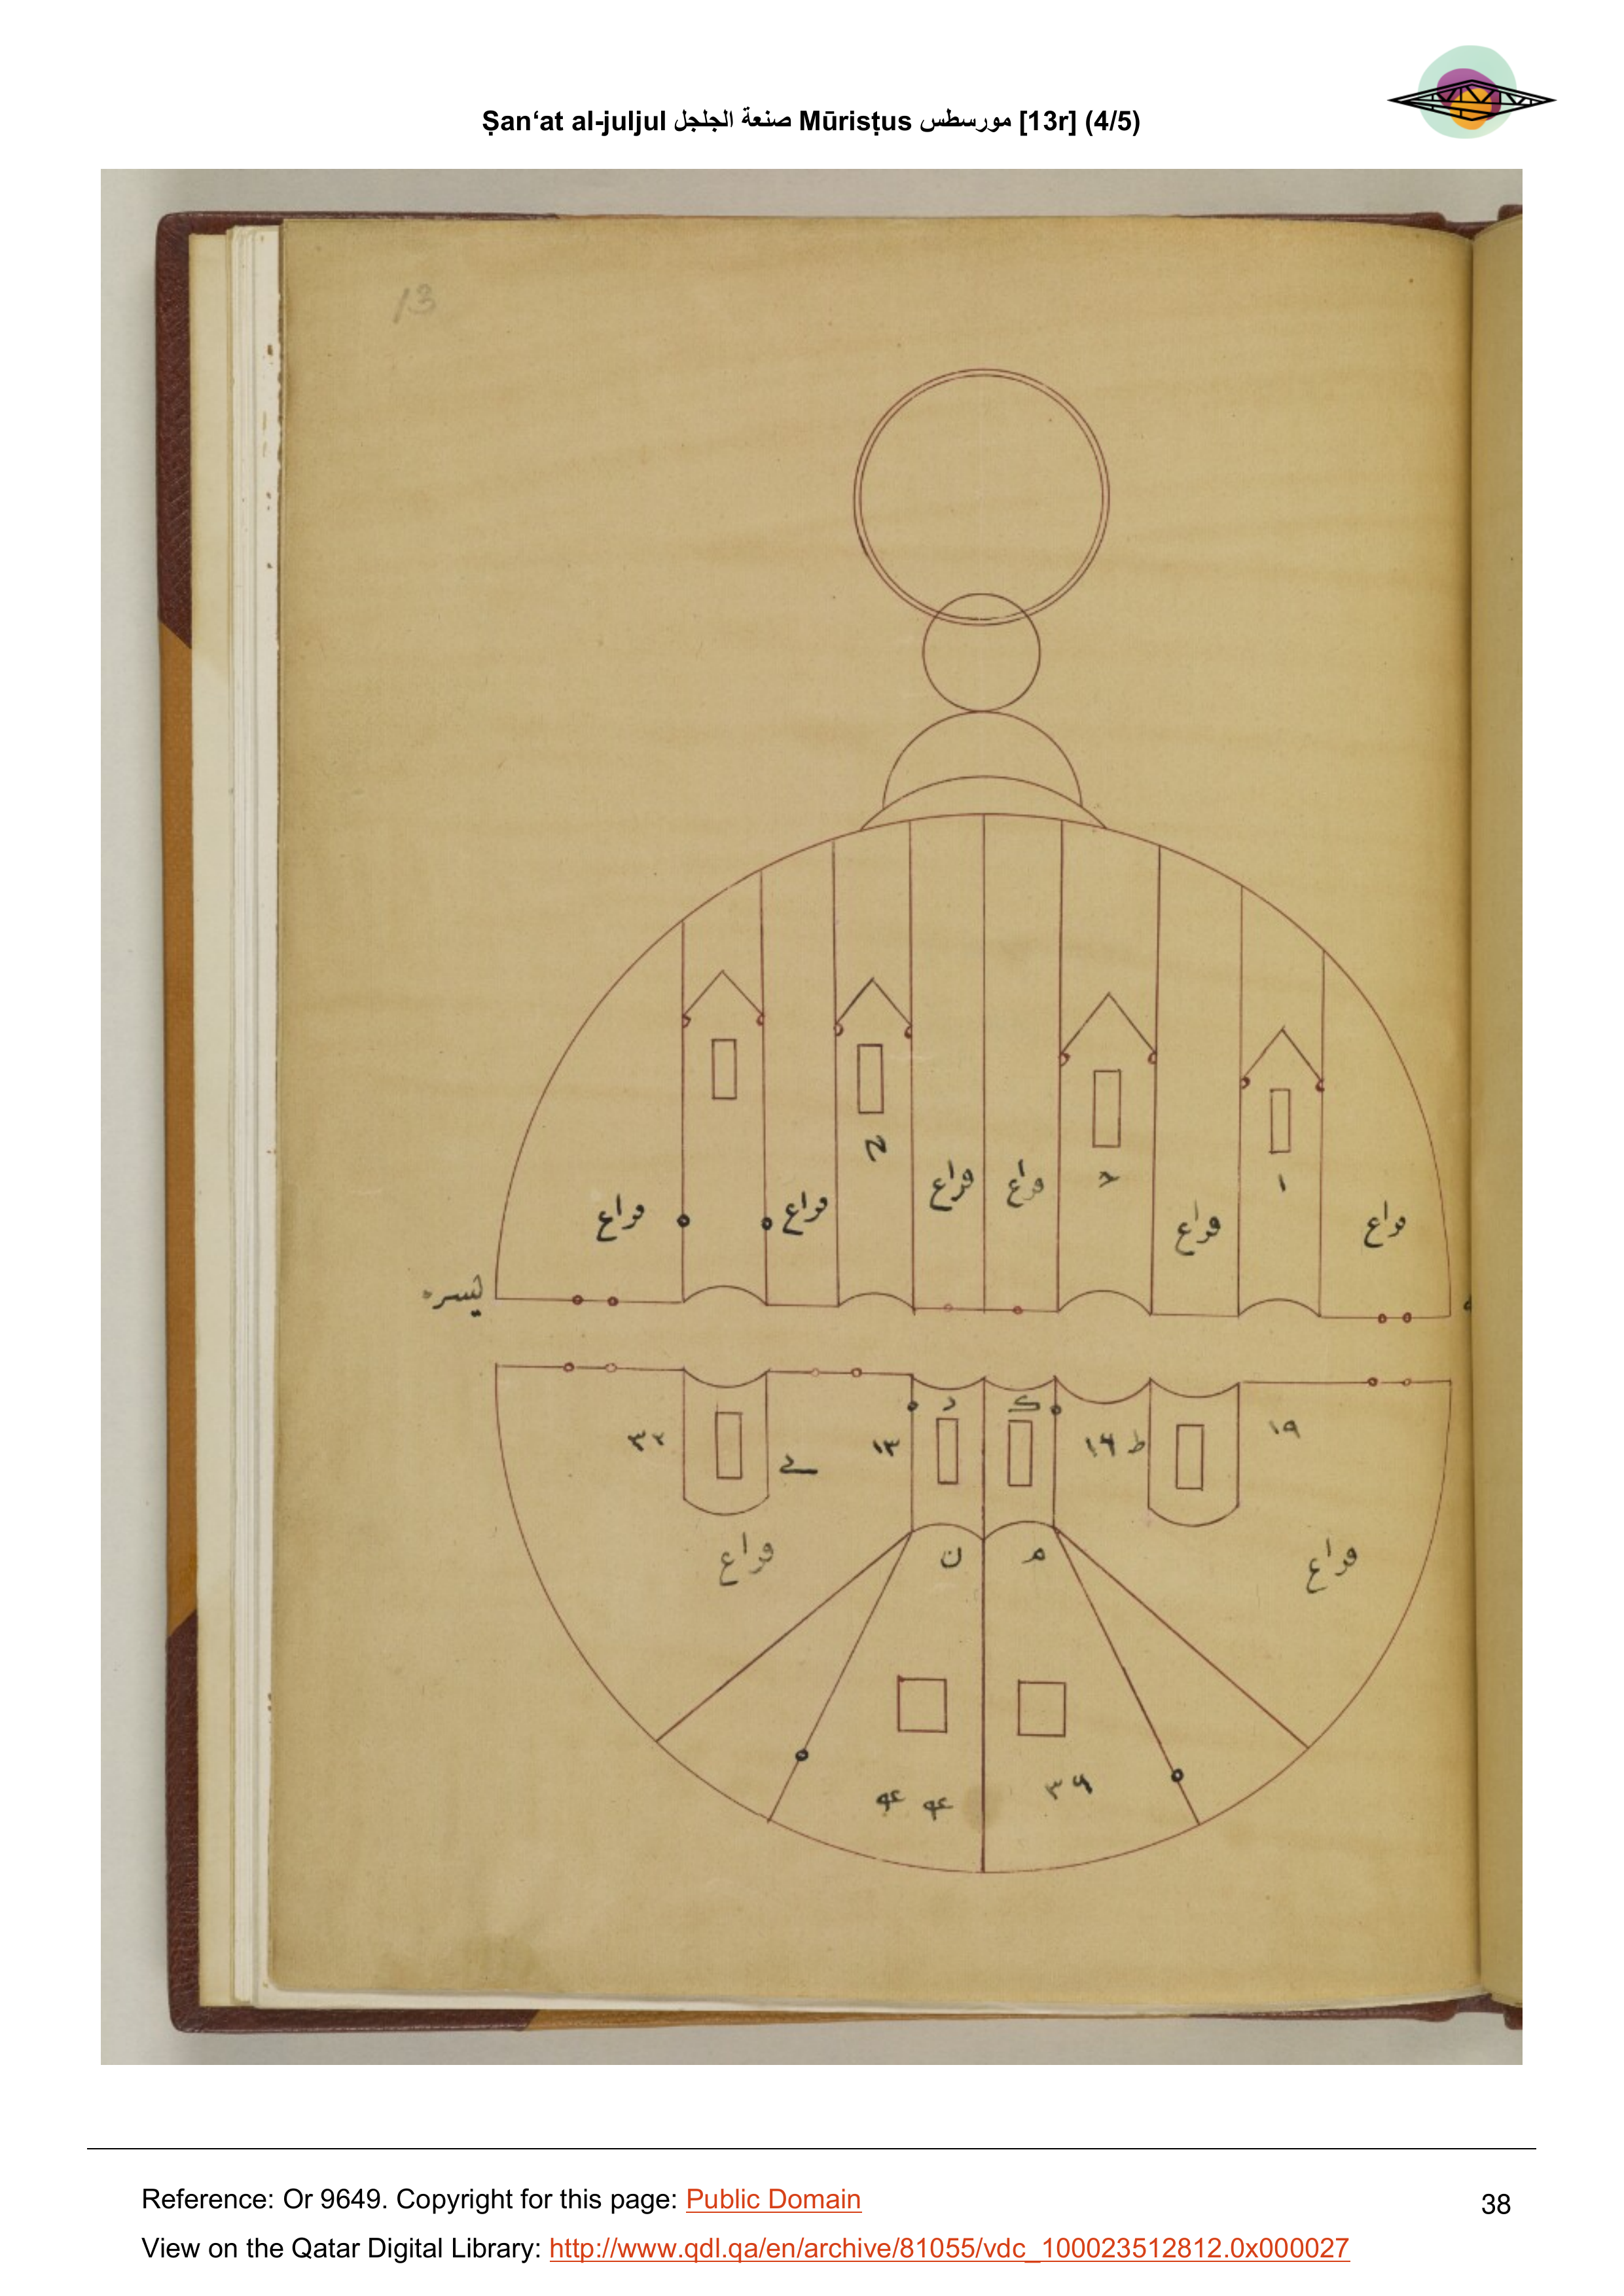 Ṣan‘at al-juljul صنعة الجلجل Mūrisṭus مورسطس [13r] (4/5)
13
فراع فراع فراع فراع فراع فراع
١
١٩ ط ١٦ ك د ١٣ ٣٢
م ن
فراع فراع
٣٦
Reference: Or 9649. Copyright for this page: Public Domain
38
View on the Qatar Digital Library: http://www.qdl.qa/en/archive/81055/vdc_100023512812.0x000027